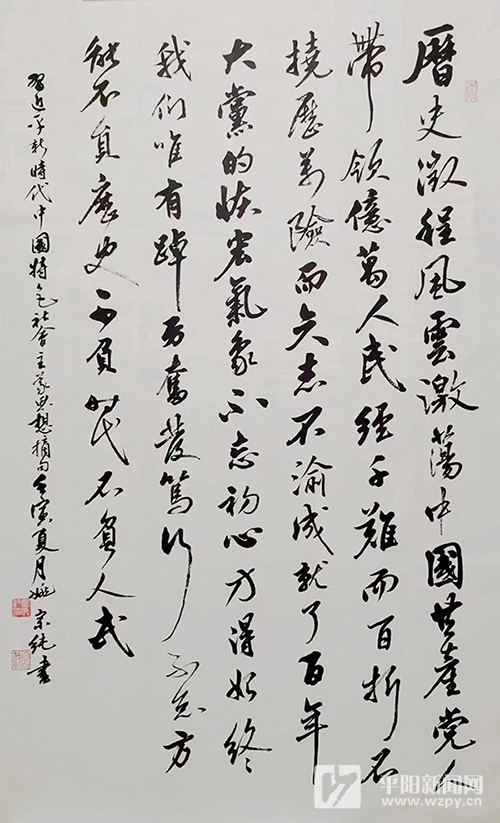 曆史徵程風雲激蕩中國共產党人
帶領億萬人民經千難而百折不
撓歷萬險而矢志不渝成就了百年
大黨的恢宏氣象不忘初心方得始終
我们唯有踔厉奮發篤行不怠方
能不負歷史不負時代不負人民
習近平新時代中國特色社會主義思想摘句壬寅夏月姚宗純書
平阳新闻网
www.wzpy.cn